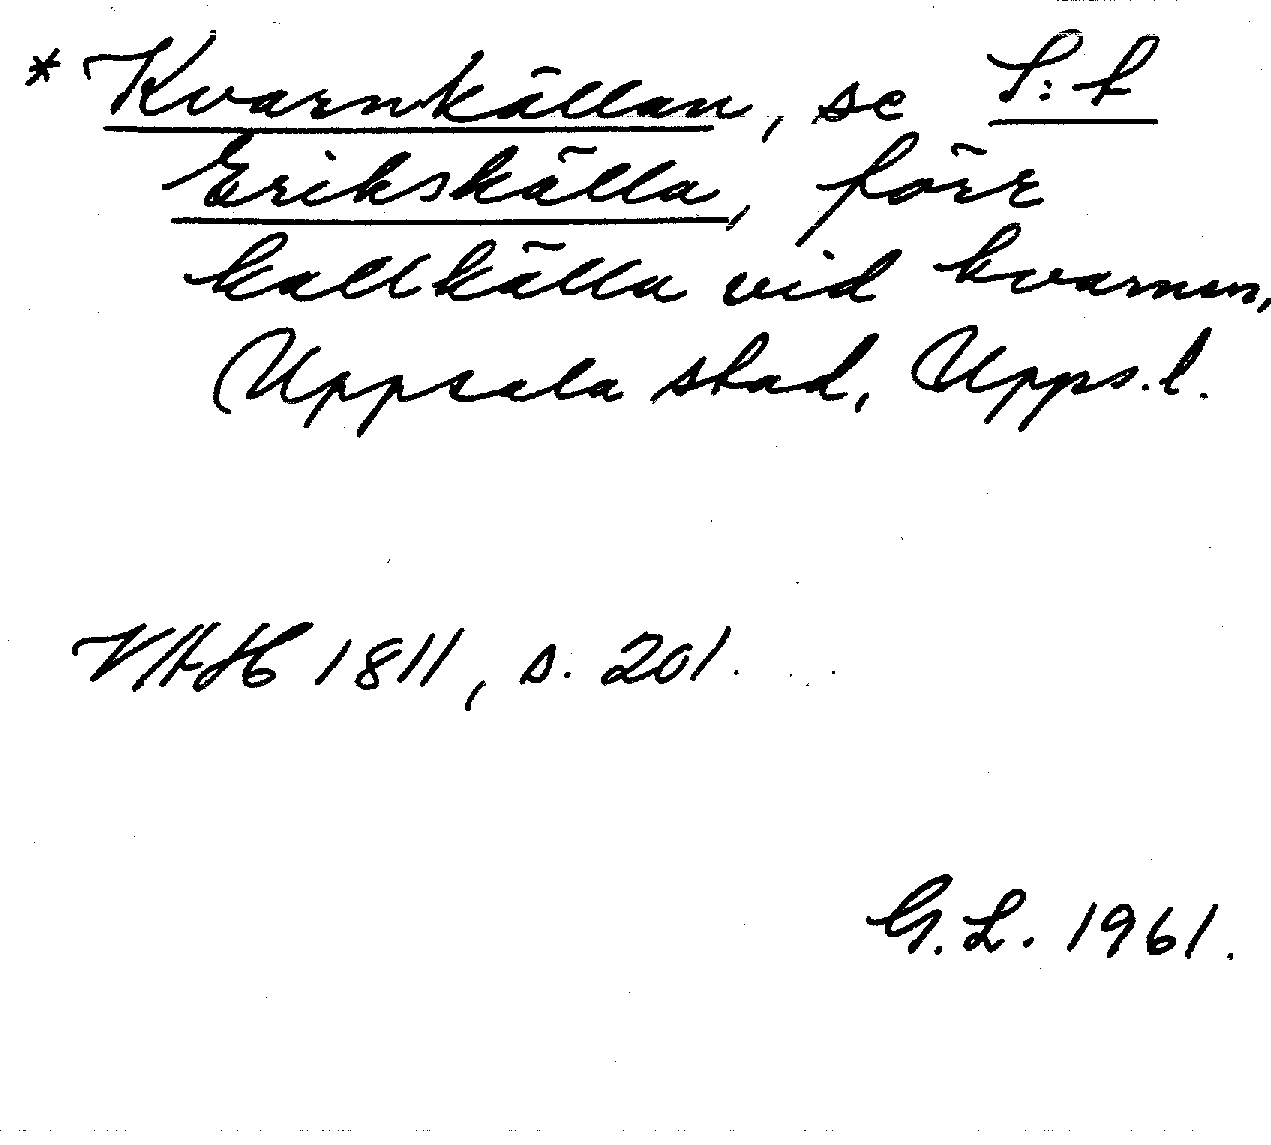 * Kvarnkällan, se S:t
Erikskälla, förr
kallkälla vid kvarnen,
Uppsala stad, Upps.l.
VAH 1811, s. 201.
G.L. 1961.